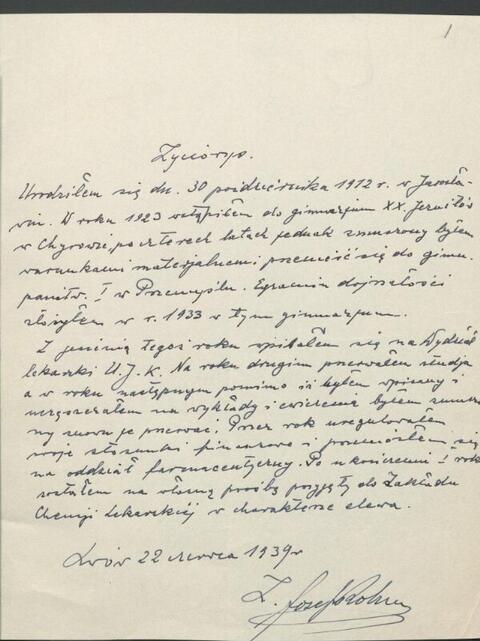 1
Życiorys.
Urodziłem się dn. 30 października 1912 r. w Jarosła-
wiu. W roku 1923 wstąpiłem do gimnazjum XX. Jezuitów
w Chyrowie, po czterech latach jednak zmuszony byłem
warunkami materjalnemi przenieść się do gimn.
państw. I w Przemyślu. Egzamin dojrzałości
złożyłem w r. 1933 w tym gimnazjum.
Z jesienią tegoż roku wpisałem się na Wydział
lekarski U.J.K. Na roku drugim przerwałem studja
a w roku następnym pomimo iż byłem wpisany i
uczęszczałem na wykłady i ćwiczenia byłem zmuszo-
ny znowu je przerwać. Przez rok uregulowałem
swoje stosunki finansowe i przeniosłem się
na oddział farmaceutyczny. Po ukończeniu I roku
zostałem na własną prośbę przyjęty do Zakładu
Chemji Lekarskiej w charakterze elewa.
Lwów 22 czerwca 1939 r